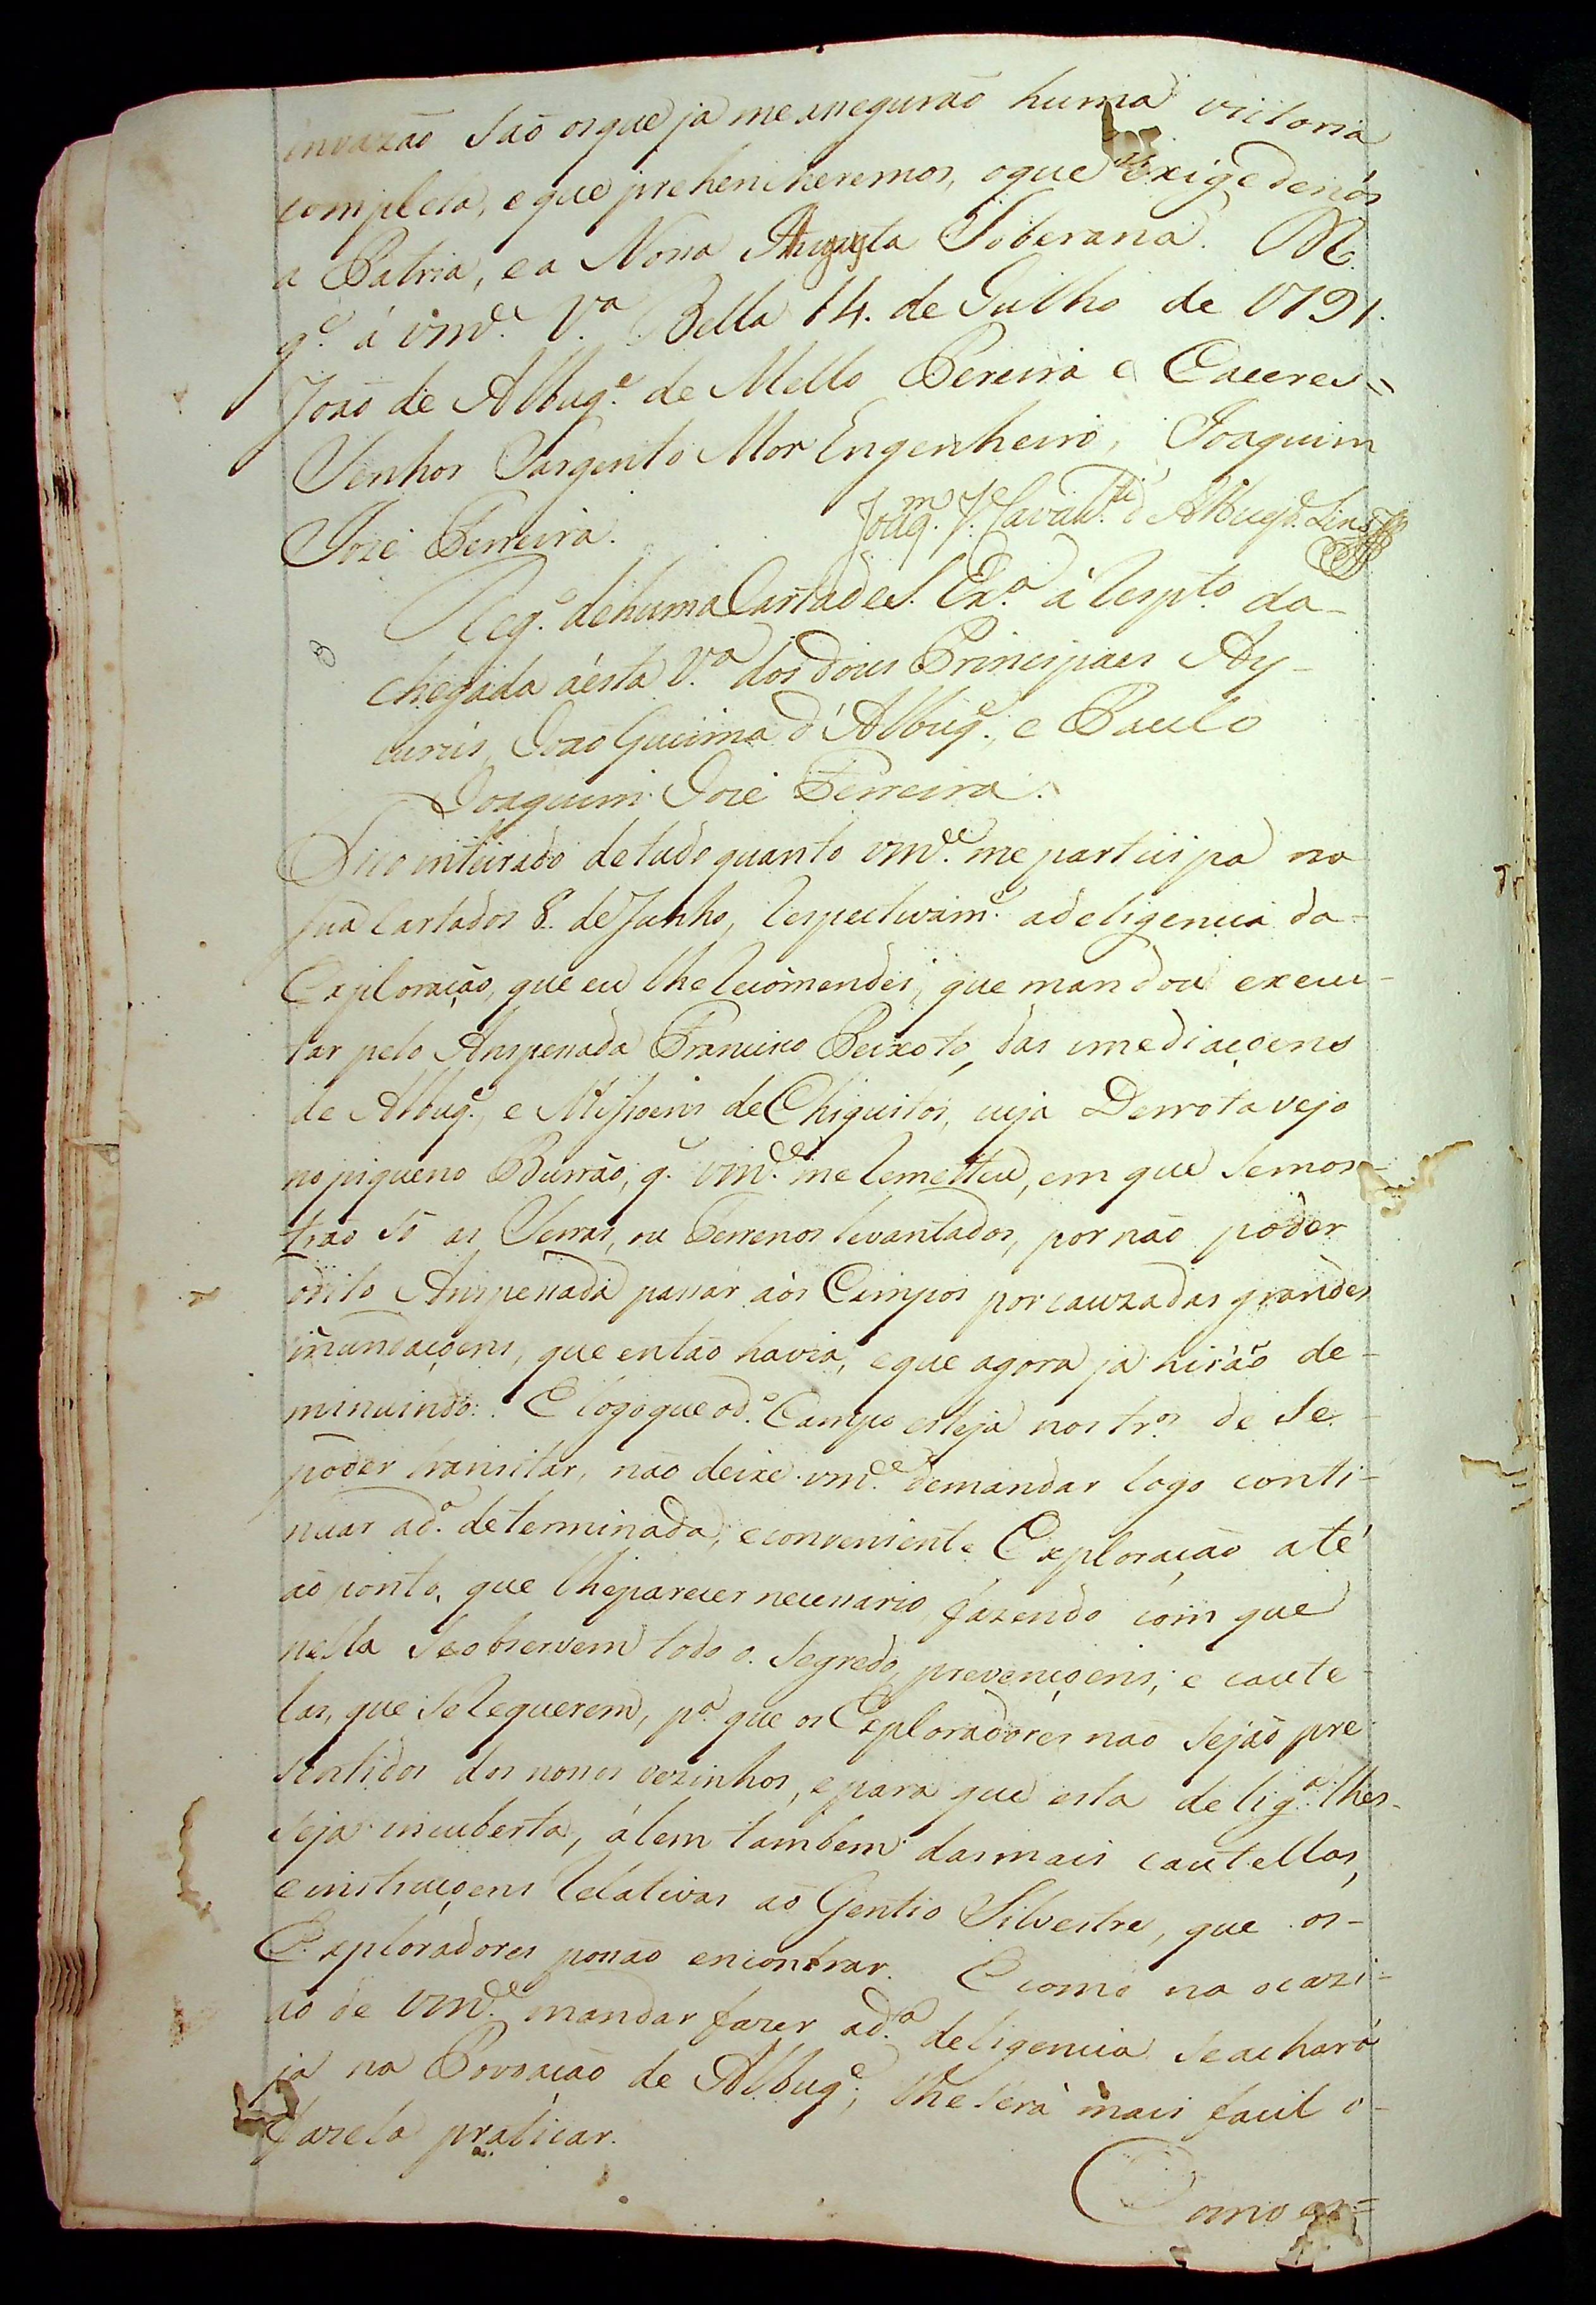 invazão saõ osque ja me assegurão huma victoria
completa, e que prehencheremos, oque exige denós
a Patria, e a Nossa Augusta Soberana. D.s
g.e á vm.ce V.a Bella 14. de Julho de 1791.
João de Albuq.e de Mello Pereira e Caceres=
Senhor Sargento Mor Engenheiro, Joaquim
José Ferreira.
Joaq.m J.e Cavalc.ti d'Albuq.e Lins
Reg.o dehuma Carta de S. Ex.a á resp.to da-
chegada áesta V.a dos dous Principaes Ay-
curús, João Queima d'Albuq.e, e Paulo
Joaquim José Ferreira.
Fico inteirado detudo quanto vm.ce me participa na
sua Carta dos 8. de Junho, respectivam.e adeligencia da-
Exploração, que eu lhe recomendei, que mandou execu-
tar pelo Anspessada Francisco Peixoto, das imediaçoens
de Albuq.e, e Missoens de Chiquitos, cuja Derrota vejo
no piqueno Burrão, q.e vm.ce me remetteu, em que semos-
trão só as Serras, ou Terrenos levantados, por não poder
odito Anspessada passar aós Campos por cauza das grandes
inundaçoens, que então havia, eque agora ja hirão de-
minuindo: E logo que od.o Campo esteja nos tr.os de se-
poder transitar, não deixe vm.ce demandar logo conti-
nuar ad.a determinada, econveniente Exploração até
aó ponto, que lheparecer necessario, fazendo com que
nesta seobservem todo o segredo, prevençoens, e caute-
las, que se requerem, p.a que os Exploradores não sejão pre
sentidos dos nossos vezinhos, e para que esta delig.a lhes-
seja incuberta, álem tambem dasmais cautellas,
e instruçoens relativas aó Gentio Silvestre, que os-
Exploradores possão encontrar. E como na ocazi-
ão de vm.ce mandar fazer ad.a deligencia seachará
ja na Povoação de Albuq.e, lhe será mais facil o-
fazela praticar.
Como es=